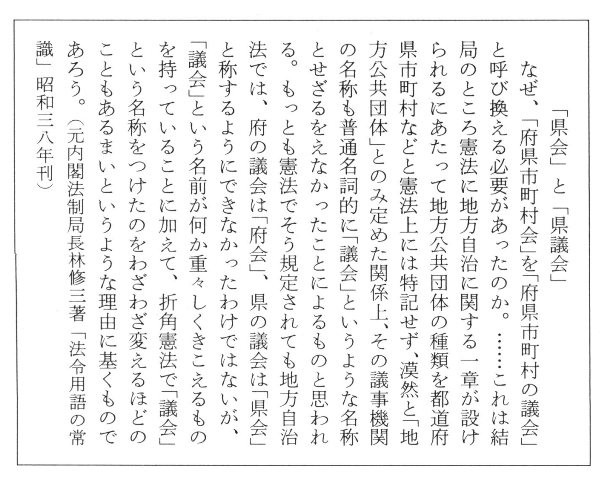 「県会」と「県議会」
なぜ、「府県市町村会」を「府県市町村の議会」
と呼び換える必要があったのか。……これは結
局のところ憲法に地方自治に関する一章が設け
られるにあたって地方公共団体の種類を都道府
県市町村などと憲法上には特記せず、漠然と「地
方公共団体」とのみ定めた関係上、その議事機関
の名称も普通名詞的に「議会」というような名称
とせざるをえなかったことによるものと思われ
る。もっとも憲法でそう規定されても地方自治
法では、府の議会は「府会」、県の議会は「県会」
と称するようにできなかったわけではないが、
「議会」という名前が何か重々しくきこえるもの
を持っていることに加えて、折角憲法で「議会」
という名称をつけたのをわざわざ変えるほどの
こともあるまいというような理由に基くもので
あろう。（元内閣法制局長林修三著「法令用語の常
識」昭和三八年刊）